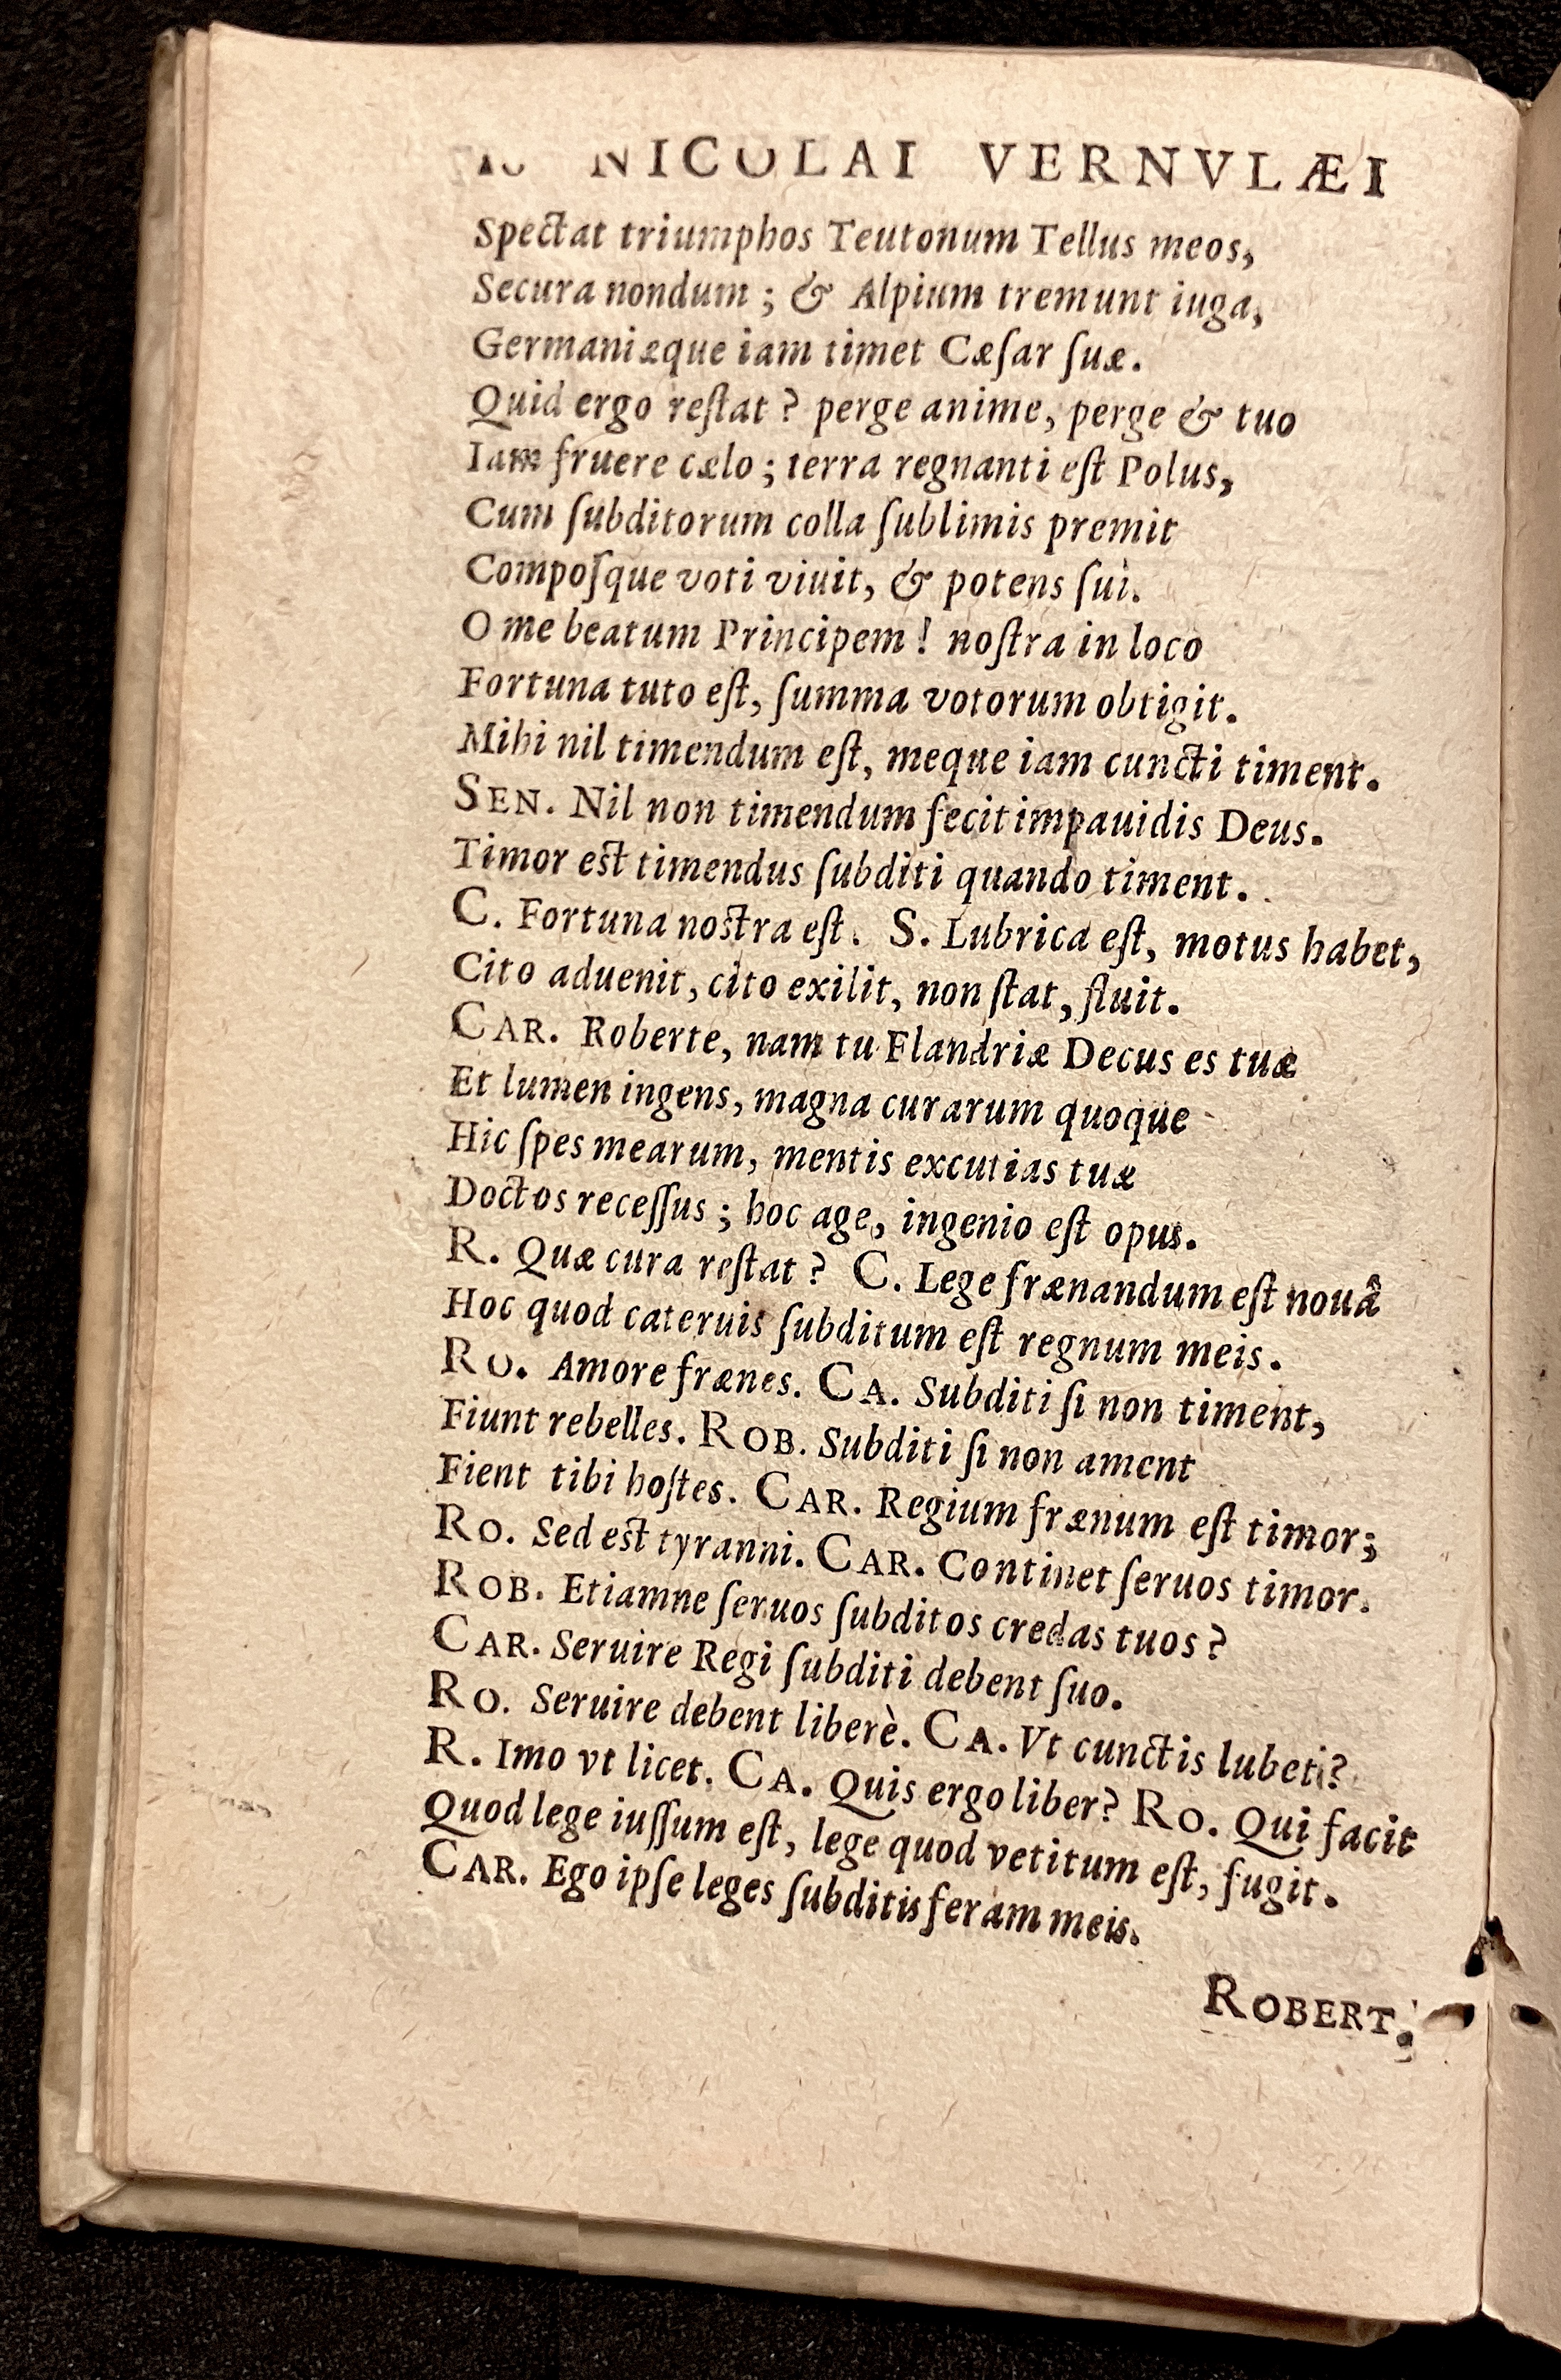 NICOLAI VERNVLÆI
Spectat triumphos Teutonum Tellus meos,
Secura nondum ; & Alpium tremunt iuga,
Germaniæque iam timet Cæſar ſuæ.
Quid ergo reſtat ? perge anime, perge & tuo
Iam fruere cælo ; terra regnanti eſt Polus,
Cum ſubditorum colla ſublimis premit
Compoſque voti viuit, & potens ſui.
O me beatum Principem ! noſtra in loco
Fortuna tuto eſt, ſumma votorum obtigit.
Mihi nil timendum eſt, meque iam cuncti timent.
SEN. Nil non timendum fecit impauidis Deus.
Timor est timendus ſubditi quando timent.
C. Fortuna nostra eſt. S. Lubrica eſt, motus habet,
Cito aduenit, cito exilit, non ſtat, fluit.
CAR. Roberte, nam tu Flandriæ Decus es tuæ
Et lumen ingens, magna curarum quoque
Hic ſpes mearum, mentis excutias tuæ
Doctos receſſus ; hoc age, ingenio eſt opus.
R. Quæ cura reſtat ? C. Lege frænandum eſt nouâ
Hoc quod cateruis ſubditum eſt regnum meis.
RO. Amore frænes. CA. Subditi ſi non timent,
Fiunt rebelles. ROB. Subditi ſi non ament
Fient tibi hoſtes. CAR. Regium frænum eſt timor;
RO. Sed est tyranni. CAR. Continet ſeruos timor.
ROB. Etiamne ſeruos ſubditos credas tuos ?
CAR. Seruire Regi ſubditi debent ſuo.
RO. Seruire debent liberè. CA. Vt cunctis lubet?
R. Imo vt licet. CA. Quis ergo liber? RO. Qui facit
Quod lege iuſſum eſt, lege quod vetitum eſt, fugit.
CAR. Ego ipſe leges ſubditis feram meis.
ROBERT.